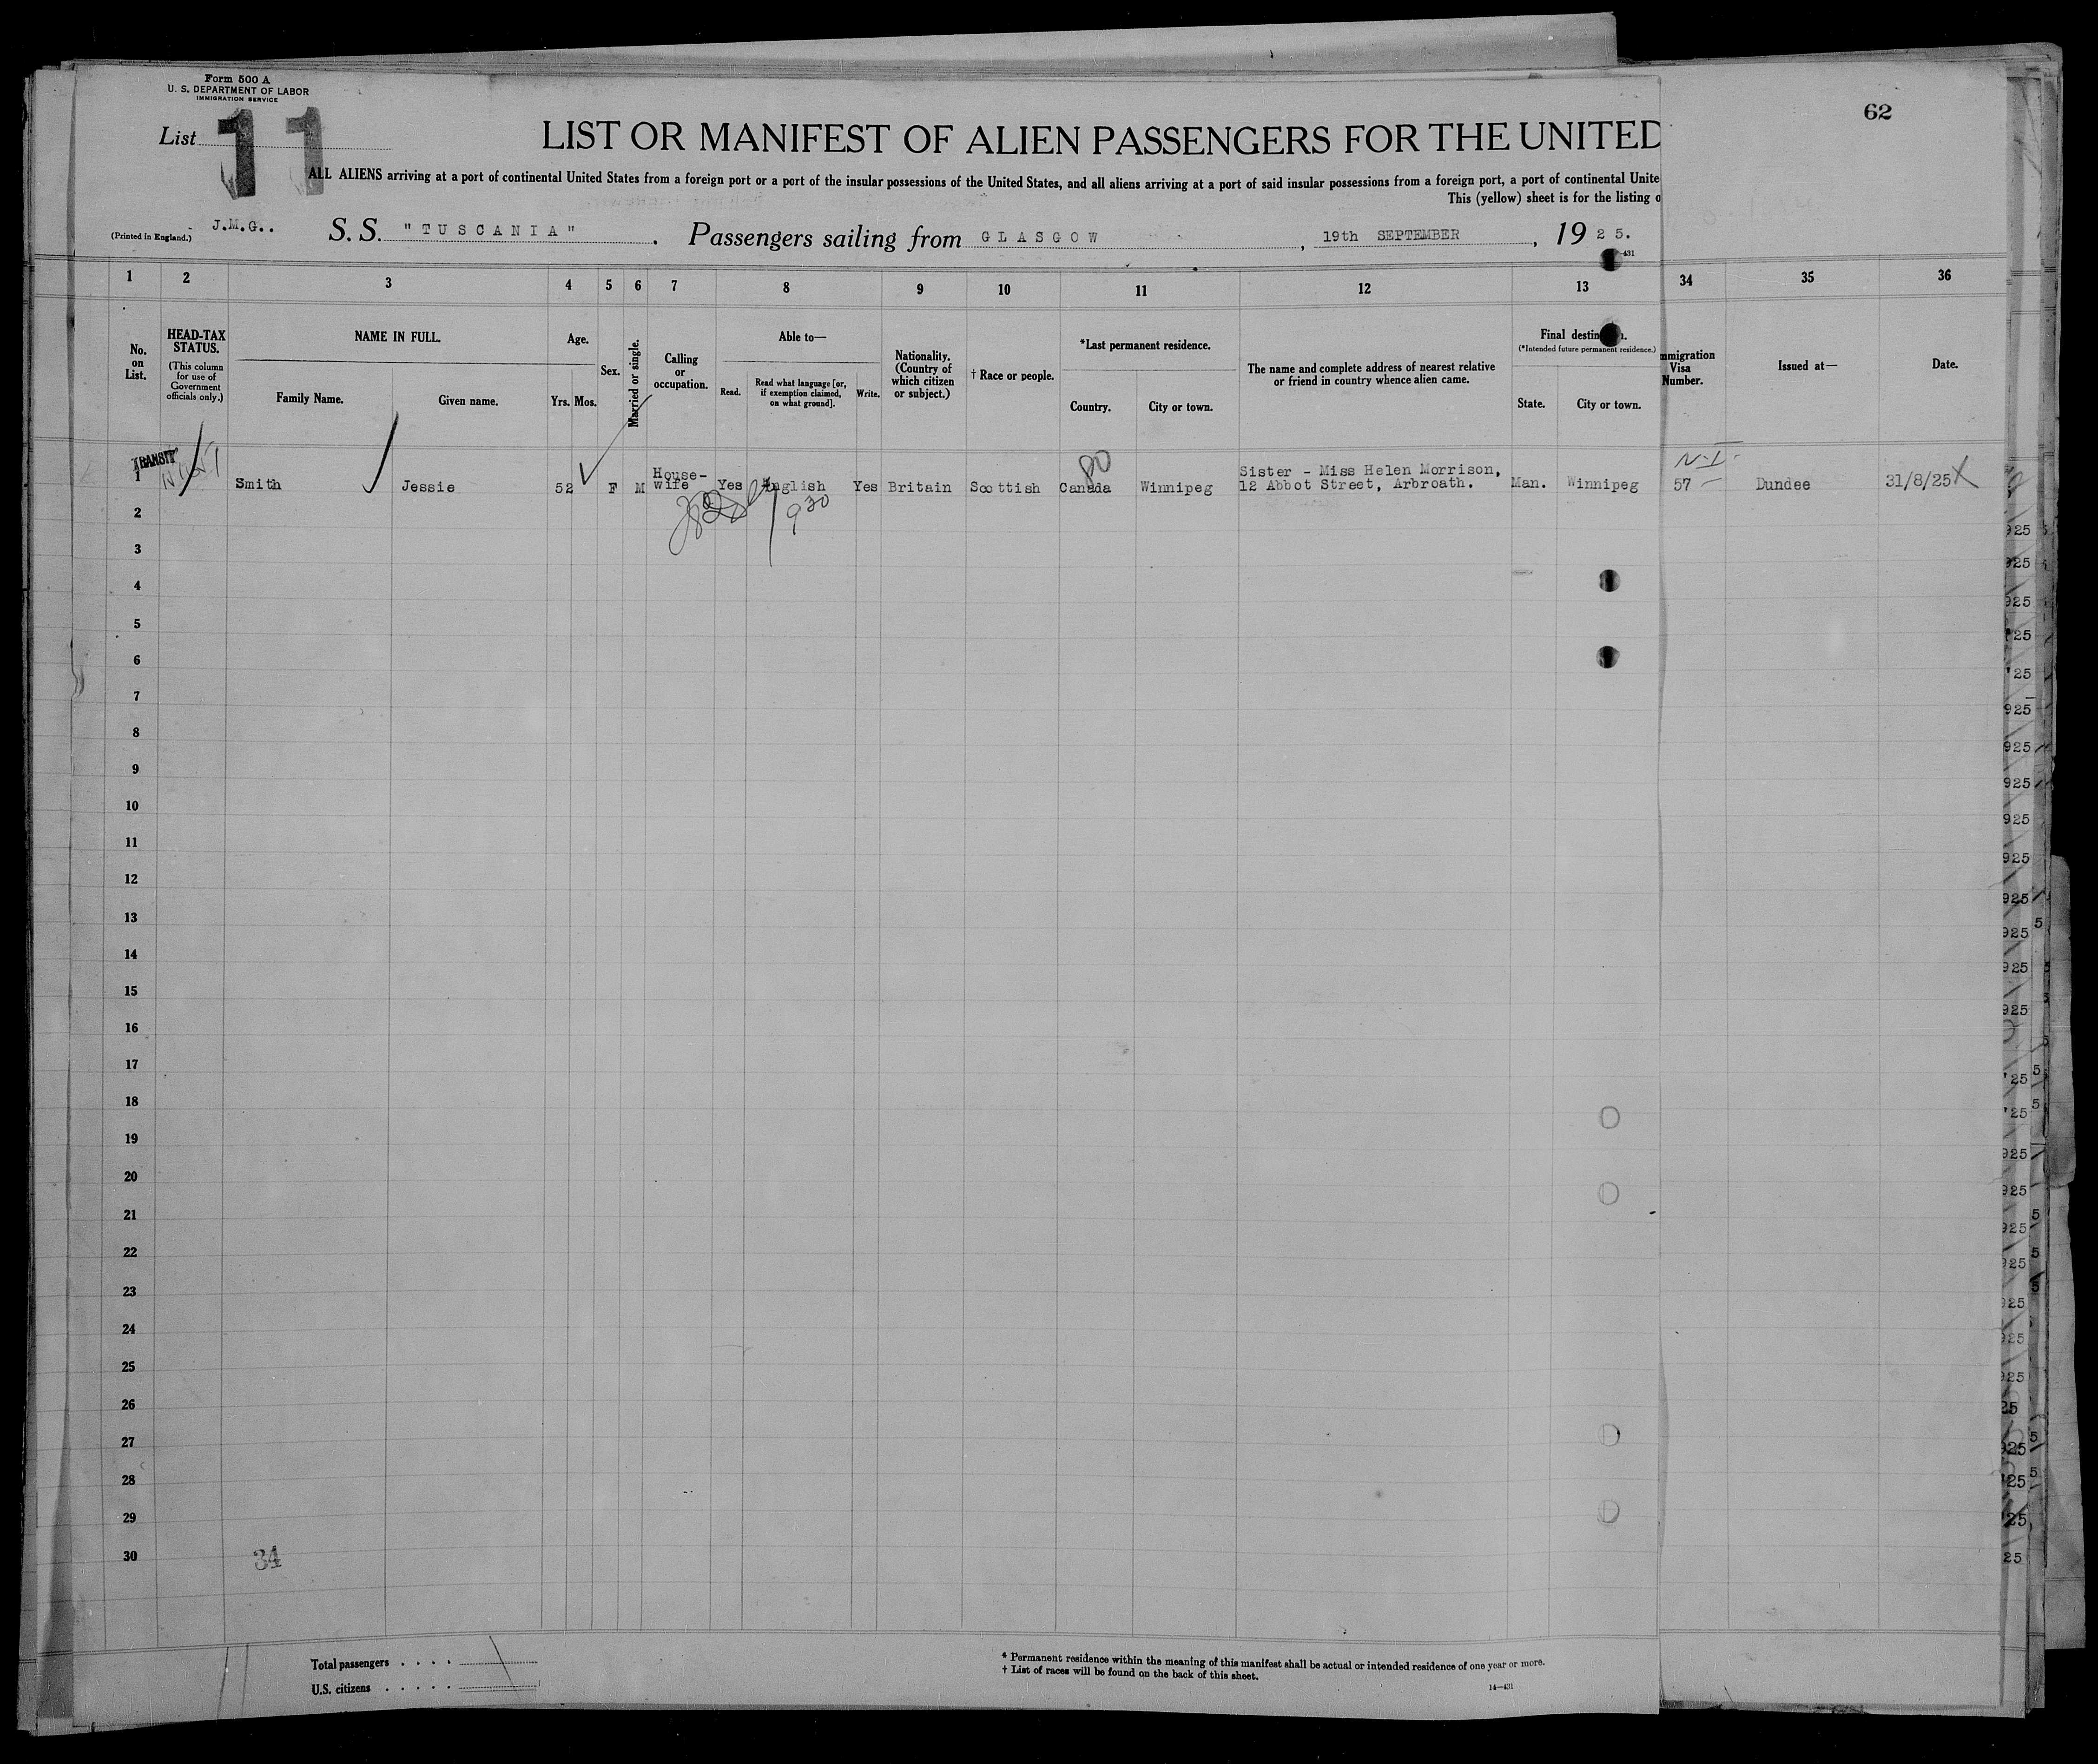 Form 500 A
U. S. DEPARTMENT OF LABOR
IMMIGRATION SERVICE
List 11
62
LIST OR MANIFEST OF ALIEN PASSENGERS FOR THE UNITED
ALL ALIENS arriving at a port of continental United States from a foreign port or a port of the insular possessions of the United States, and all aliens arriving at a port of said insular possessions from a foreign port, a port of continental Unite
This (yellow) sheet is for the listing o
(Printed in England.) J.M.G.. S. S. "TUSCANIA" . Passengers sailing from GLASGOW , 19th SEPTEMBER , 19 25.
1 2 3 4 5 6 7 8 9 10 11 12 13 34 35 36
No. on List.
HEAD-TAX STATUS.
(This column for use of Government officials only.)
NAME IN FULL.
Family Name.
Given name.
Age.
Yrs. Mos.
Sex.
Married or single.
Calling or occupation.
Able to—
Read.
Read what language [or, if exemption claimed, on what ground].
Write.
Nationality. (Country of which citizen or subject.)
† Race or people.
*Last permanent residence.
Country.
City or town.
The name and complete address of nearest relative or friend in country whence alien came.
Final destin n.
(*Intended future permanent residence.)
State.
City or town.
mmigration Visa Number.
Issued at—
Date.
TRANSIT
80
N-I-
1 Smith Jessie 52 F M House-wife Yes English Yes Britain Scottish Canada Winnipeg Sister - Miss Helen Morrison, 12 Abbot Street, Arbroath. Man. Winnipeg 57 — Dundee 31/8/25 X
930
2
3
4
5
6
7
8
9
10
11
12
13
14
15
16
17
18
19
20
21
22
23
24
25
26
27
28
29
30
34
Total passengers . . . .
U.S. citizens . . . . .
* Permanent residence within the meaning of this manifest shall be actual or intended residence of one year or more.
† List of races will be found on the back of this sheet.
14—431